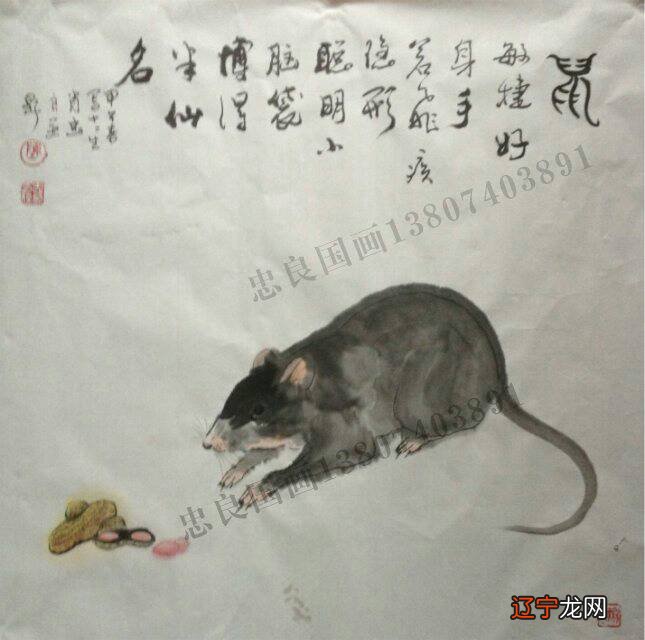 鼠
敏捷好
身手
若飛疾
隐形
聪明小
脑袋
博得
半仙
名
甲午春
忠良国画13807403891
忠良国画13807403891
辽宁龙网